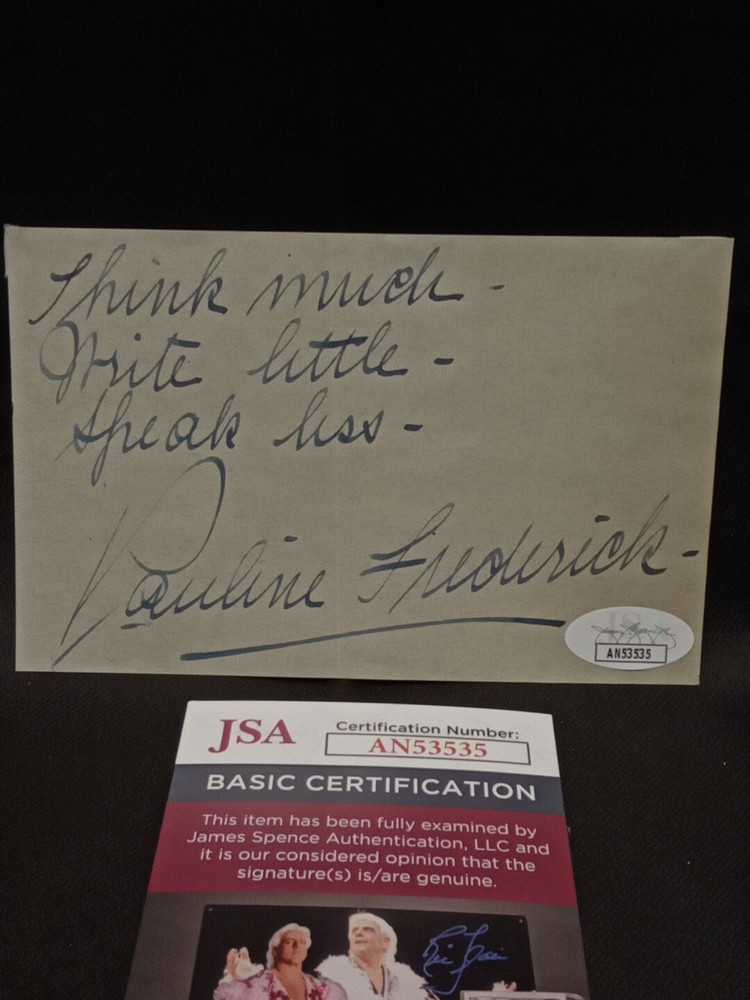 Think much -
Write little -
Speak less -
Pauline Frederick -
AN53535
JSA
Certification Number:
AN53535
BASIC CERTIFICATION
This item has been fully examined by
James Spence Authentication, LLC and
it is our considered opinion that the
signature(s) is/are genuine.